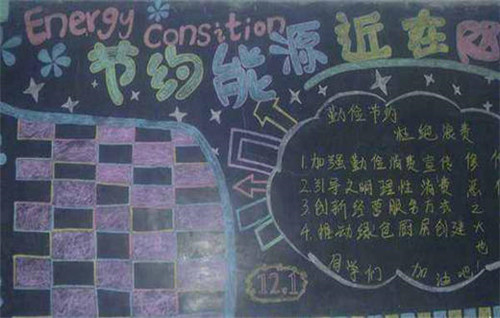 Energy Consition
节约能源近在
勤俭节约
杜绝浪费
1.加强勤俭消费宣传
2.引导文明理性消费
3.创新经营服务方式
4.推动绿色厨房创建
同学们 加油吧!
12.1